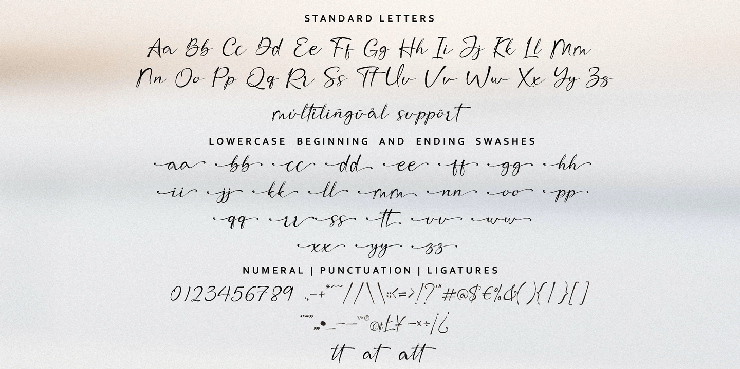 STANDARD LETTERS
Aa Bb Cc Dd Ee Ff Gg Hh Ii Jj Kk Ll Mm
Nn Oo Pp Qq Rr Ss Tt Uu Vv Ww Xx Yy Zz
multilingual support
LOWERCASE BEGINNING AND ENDING SWASHES
aa bb cc dd ee ff gg hh
ii jj kk ll mm nn oo pp
qq rr ss tt vv ww
xx yy zz
NUMERAL | PUNCTUATION | LIGATURES
0123456789 //\\:;<=>!?"#@$€%&(){|}[]
@£¥-×÷¡¿
tt at att